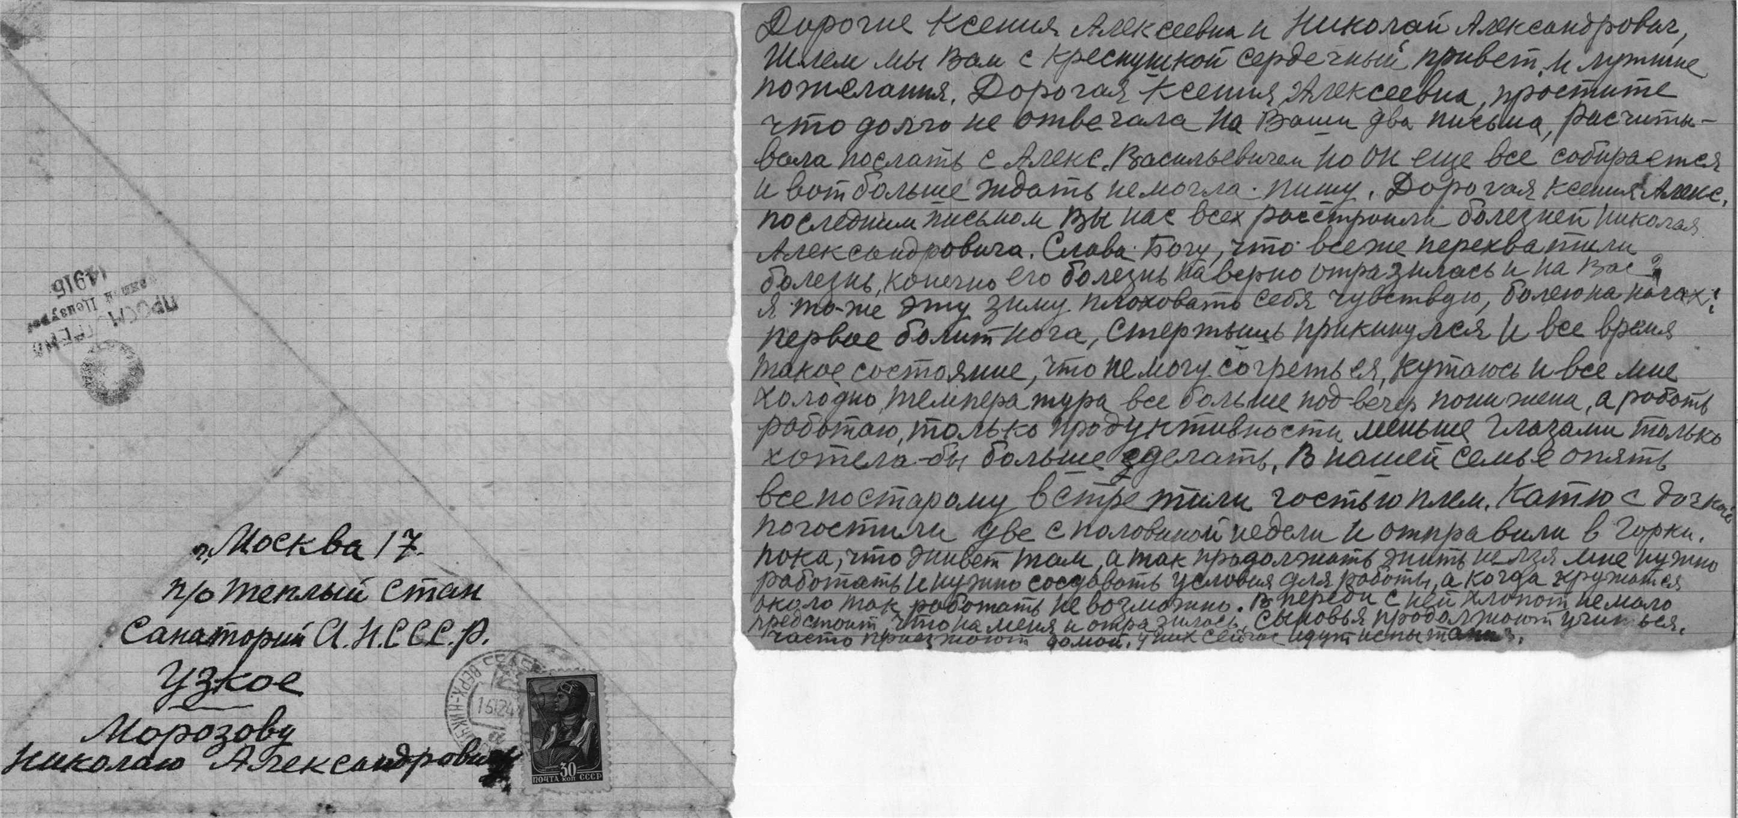 г. Москва 17.
п/о Теплый Стан
Санаторий А.Н.С.С.С.Р.
Узкое
Морозову
Николаю Александровичу
ПОЧТА 30 КОП СССР
14915
Дорогие Ксения Алексеевна и Николай Александрович,
Шлем мы Вам с Креснушкой сердечный привет и лучшие
пожелания. Дорогая Ксения Алексеевна, простите
что долго не отвечала на Ваши два письма, расчиты-
вала послать с Алекс. Васильевичем но он еще все собирается
и вот больше ждать не могла. пишу. Дорогая Ксения Алекс.
последним письмом Вы нас всех расстроили болезней Николая
Александровича. Слава Богу, что все же перехватили
болезнь, конечно его болезнь наверно отразилась и на Вас?
Я то-же эту зиму плоховато себя чувствую, болею на ногах:
первое болит нога, стержень прикинулся и все время
такое состояние, что не могу согреться, кутаюсь и все мне
холодно, температура все больше под вечер понижена, а работь
работаю, только продуктивности меньше глазами только
хотела-бы больше зделать. В нашей семье опять
все по старому встретили гостью плем. Катю с дочкой
погостили две с половиной недели и отправили в Горки.
пока, что живет там, а так продолжать жить нельзя мне нужно
работать и нужно создовать условия для работы, а когда кружатся
около так работать не возможно. В переди с ней хлопот не мало
предстоит, что на меня и отразилась. Сыновья продолжают учиться.
часто приезжают домой. у них сейчас идут испытания.